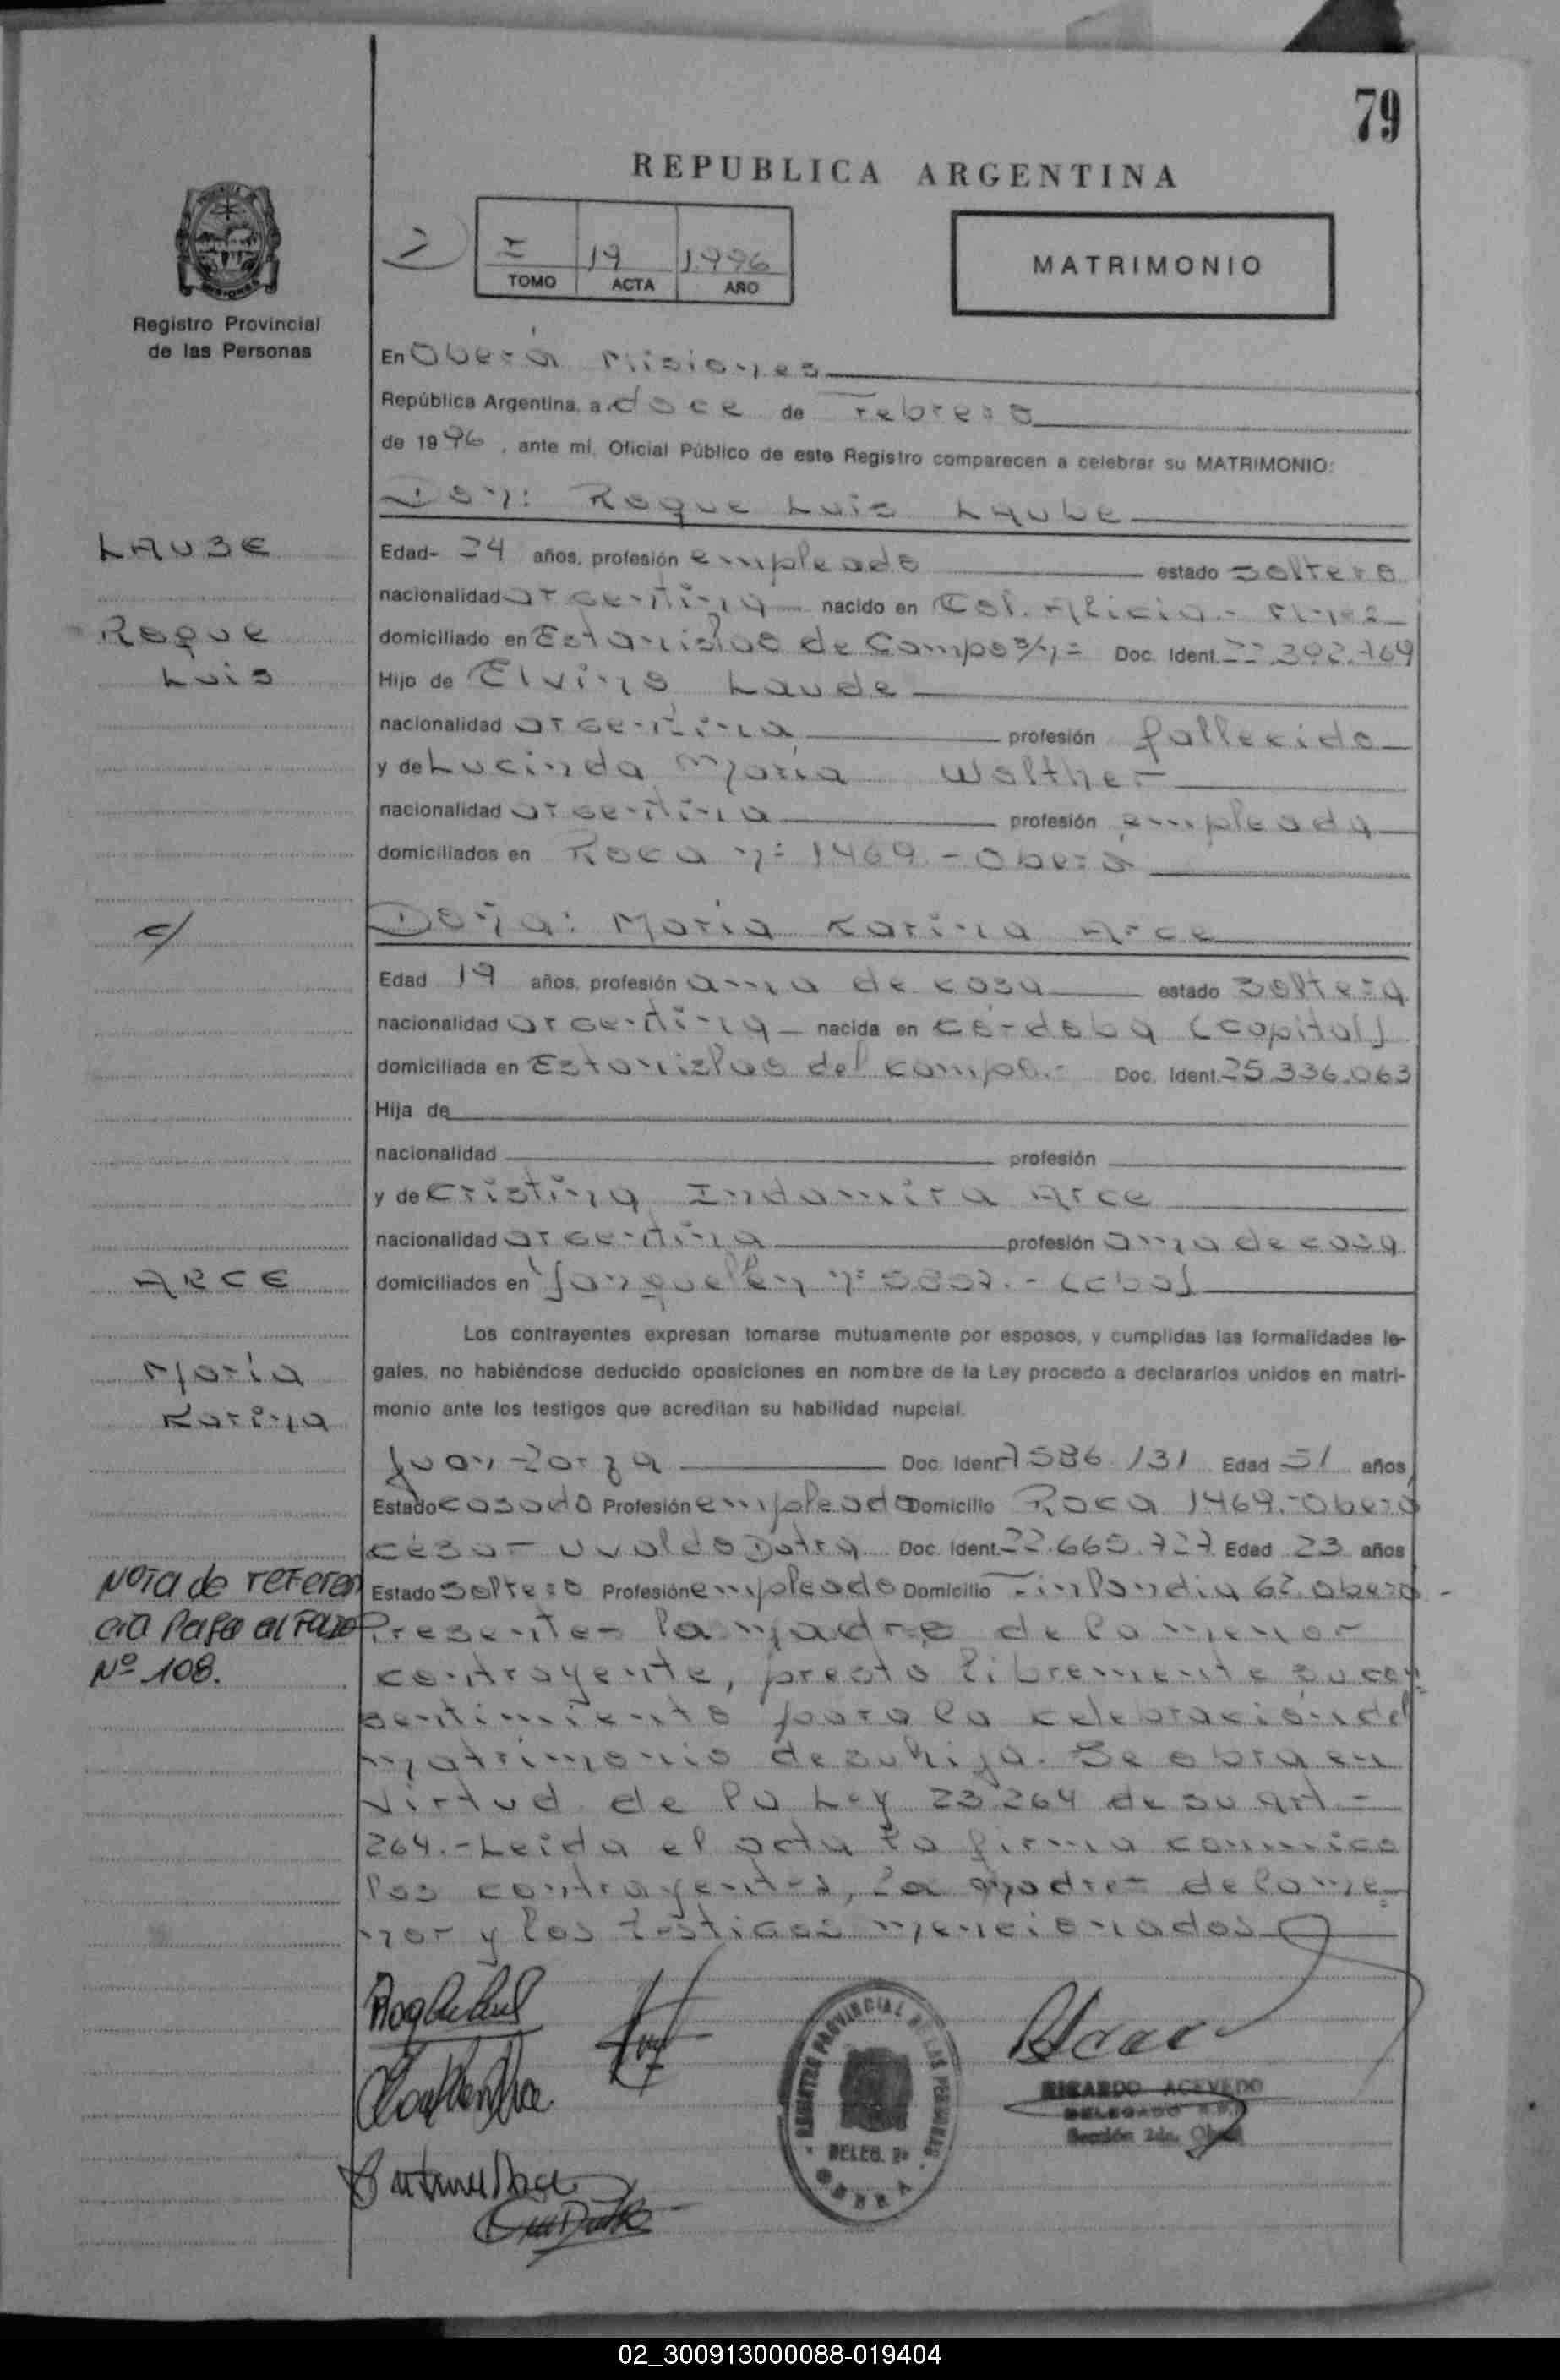 79
REPUBLICA ARGENTINA
2) I 19 1.996
TOMO ACTA AÑO
MATRIMONIO
Registro Provincial
de las Personas
En Oberá Misiones
República Argentina, a doce de Febrero
de 1996, ante mi, Oficial Público de este Registro comparecen a celebrar su MATRIMONIO:
Don: Roque Luis Laube
LAUBE
Edad- 24 años, profesión empleado estado soltero
nacionalidad argentina nacido en Col. Alicia.-
Roque
domiciliado en Estanislao de Campo s/n= Doc. Ident. 22.392.769
Luis
Hijo de Elvino Laude
nacionalidad argentina profesión fallecido
y de Lucinda Maria Walther
nacionalidad argentina profesión empleada
domiciliados en Roca n= 1469.- Oberá
c/
Doña: Maria Karina Arce
Edad 19 años, profesión ama de casa estado soltera
nacionalidad argentina nacida en Córdoba (capital)
domiciliada en Estanislao del campo.- Doc. Ident. 25.336.063
Hija de
nacionalidad profesión
y de Cristina Indamira Arce
nacionalidad argentina profesión ama de casa
ARCE
domiciliados en n= (cba)
Los contrayentes expresan tomarse mutuamente por esposos, y cumplidas las formalidades le-
Maria
gales, no habiéndose deducido oposiciones en nombre de la Ley procedo a declararlos unidos en matri-
Karina
monio ante los testigos que acreditan su habilidad nupcial.
Juan Zarza Doc. Ident 7586.131 Edad 51 años
Estado casado Profesión empleado Domicilio Roca 1469.- Oberá
César Uvaldo Dutra Doc. Ident. 22.665.727 Edad 23 años
Nota de referen
Estado soltero Profesión empleado Domicilio Finlandia 62. Oberá -
cia Pasa al Folio
Presente= la madre de la menor
Nº 108.
contrayente, presta libremente su con=
sentimiento para la celebración del
matrimonio de su hija. Se obra en
virtud de la Ley 23264 de su art=
264.- Leída el acta la firma conmigo
los contrayentes, la madre= de la me=
nor y los testigos mencionados
REGISTRO PROVINCIAL DE LAS PERSONAS
DELEG. 2a
OBERA
RICARDO ACEVEDO
DELEGADO R.P.P.
Sección 2da. Oberá
02_300913000088-019404